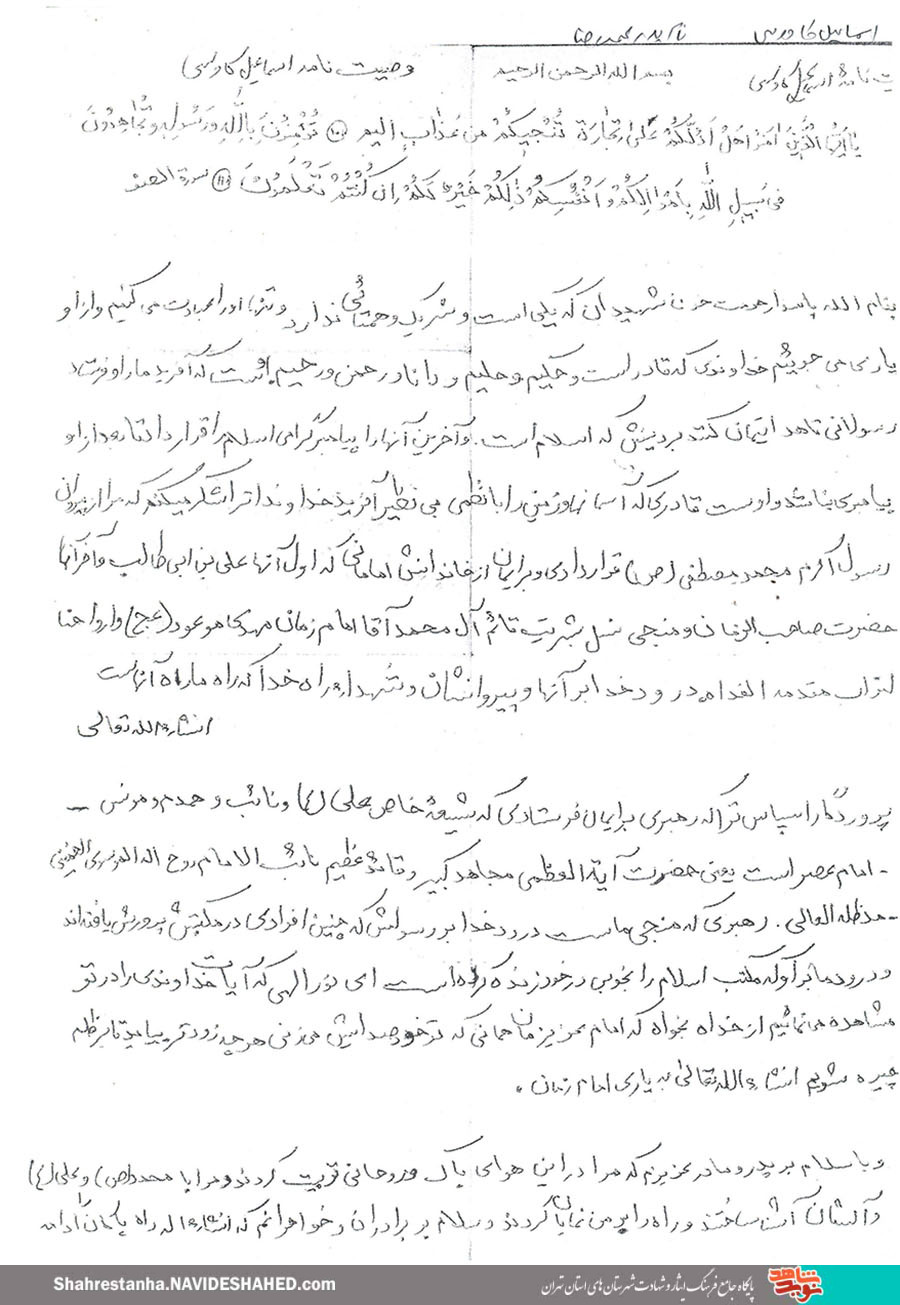 اسماعیل کاوسی نام پدر محمدرضا
یت نامهٔ اسماعیل کاوسی بسم الله الرحمن الرحیم وصیت نامه اسماعیل کاوسی
یا ایها الذین امنوا هل ادلکم علی تجارة تنجیکم من عذاب الیم (۱۰) تؤمنون بالله ورسوله وتجاهدون
فی سبیل الله باموالکم و انفسکم ذلکم خیر لکم ان کنتم تعلمون (۱۱) سورة الصف
بنام الله پاسدار حرمت خون شهیدان که یکی است و شریک و همتائی ندارد و تنها او را عبادت می کنیم و از او
یاری می جوئیم خداوندی که قادر است و حکیم و حلیم و دانا و رحمن و رحیم است که آفرید ما را و فرستاد
رسولانی تا هد ایتمان کنند بر دینش که اسلام است. و آخرین آنها را پیامبر گرامی اسلام را قرار داد تا بعد از او
پیامبری نباشد و اوست قادری که آسمانها و زمین را با نظمی بی نظیر آفرید خداوندا ترا شکر میکنم که مرا از پیروان
رسول اکرم محمد مصطفی (ص) قرار دادی و برایمان از خاندانش امامانی که اول آنها علی بن ابی طالب و آخر آنها
حضرت صاحب الزمان و منجی نسل بشریت قائم آل محمد آقا امام زمان مهدی موعود (عج) و ارواحنا
لتراب مقدمه الفداه درود خدا بر آنها و پیروانشان و شهداء راه خدا که راه ما راه آنهاست
انشاء الله تعالی
پروردگارا سپاس ترا که رهبری برایمان فرستادی که شیعهٔ خاص علی (ع) و نائب و همدم و مونس -
- امام عصر است یعنی حضرت آیة العظمی مجاهد کبیر و قائد عظیم نائب الامام روح الله الموسوی الخمینی
- مدظله العالی. رهبری که منجی ماست درود خدا بر رسولش که چنین افرادی در مکتبش پرورش یافته اند
و درود ما بر او که مکتب اسلام را بخوبی در خود زنده کرده است ای نور الهی که آیات خداوندی را در تو
مشاهده می نمائیم از خداه بخواه که امام عزیزمان همانی که تو خود صدایش می زنی هر چه زودتر بیاید تا بر ظلم
چیره شویم انشاء الله تعالی به یاری امام زمان.
و با سلام بر پدر و مادر عزیزم که مرا در این هوای پاک و روحانی تربیت کردند و مرا با محمد (ص) و علی (ع)
و آلشان آشنا ساختند و راه را بر من نمایان کردند و سلام بر برادران و خواهرانم که انشاء الله راه پاکمان را ادامه
Shahrestanha.NAVIDESHAHED.com
پایگاه جامع فرهنگ ایثار و شهادت شهرستان های استان تهران
نوید شاهد